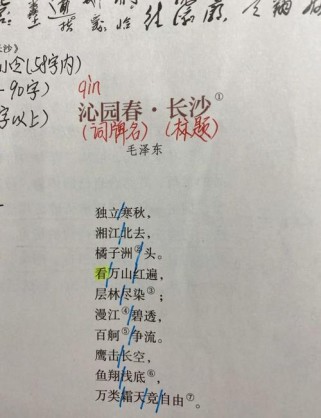 长沙》
小令(58字内)
-90字)
字以上)
qin
沁园春·长沙①
(词牌名) (标题)
毛泽东
独立寒秋，
湘江北去，
橘子洲②头。
看万山红遍，
层林尽染③；
漫江④碧透，
百舸⑤争流。
鹰击长空，
鱼翔浅底⑥，
万类霜天竞自由⑦。